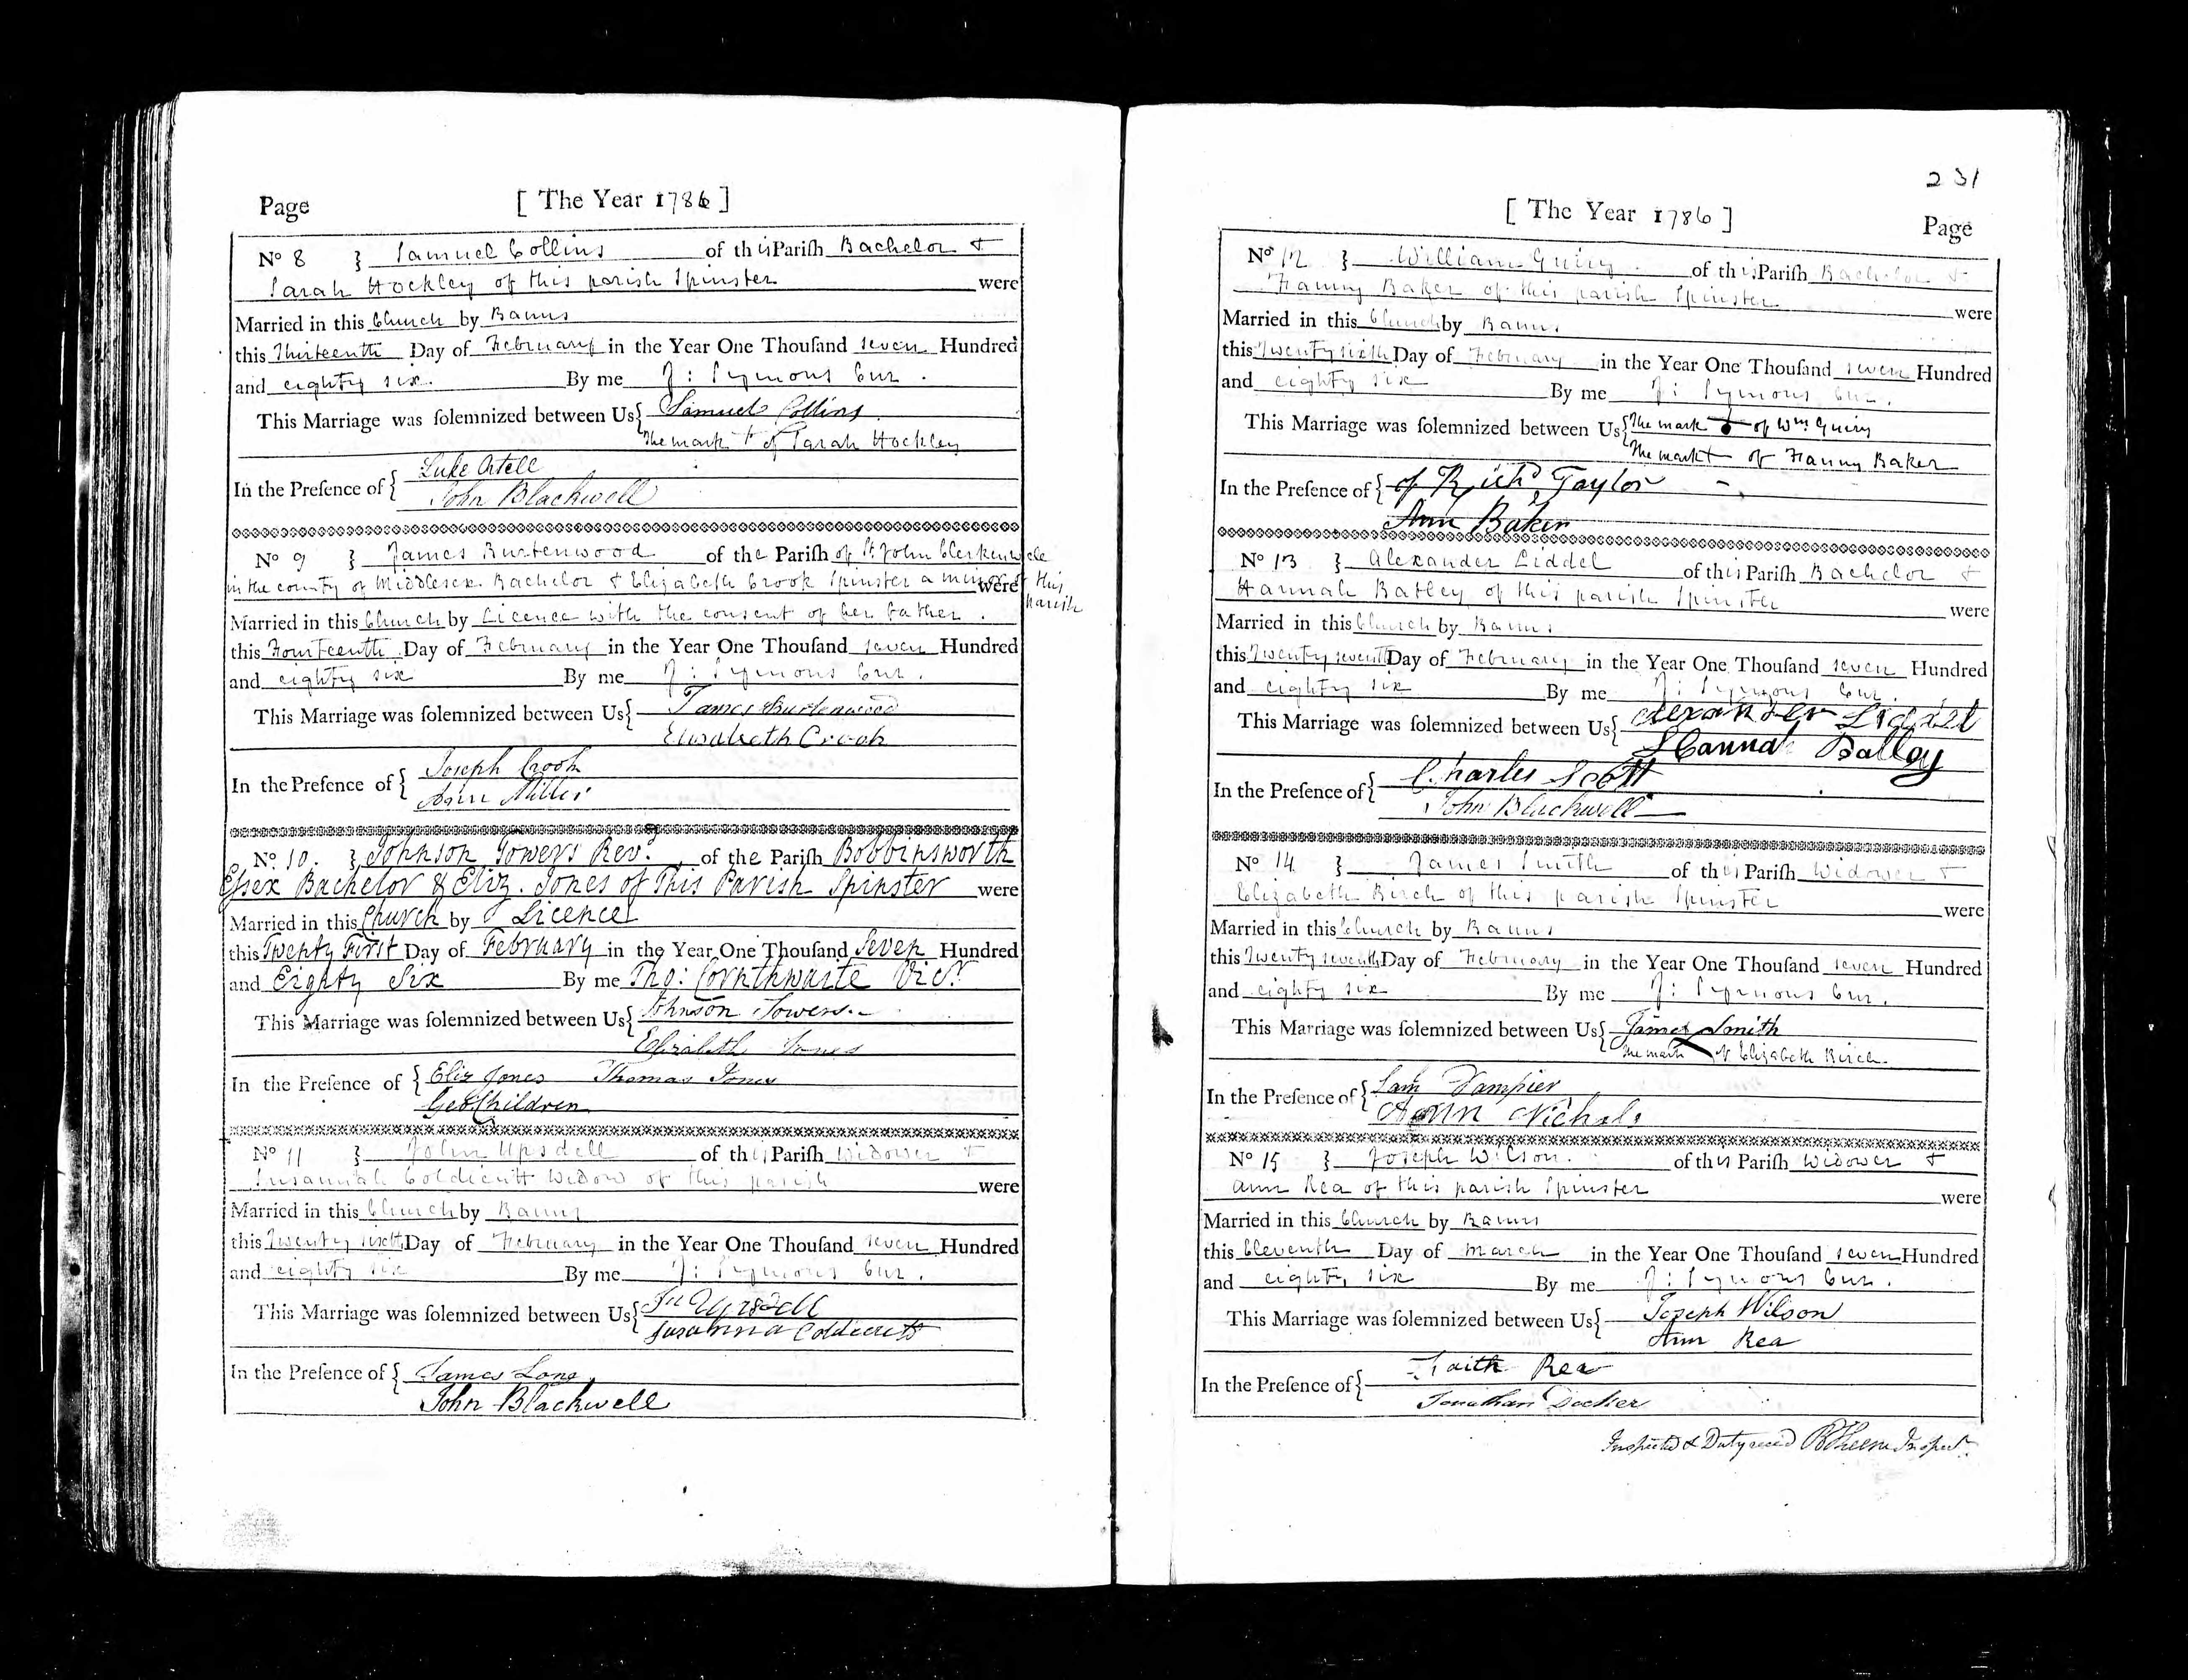 Page [ The Year 1786 ]
No 8 } Samuel Collins of this Pariſh Bachelor &
Sarah Hockley of this parish Spinster were
Married in this Church by Banns
this Thirteenth Day of February in the Year One Thouſand seven Hundred
and eighty six. By me J: Symons Cur.
This Marriage was ſolemnized between Us { Samuel Collins
The mark + of Sarah Hockley
In the Preſence of { Luke
John Blackwell
No 9 } James Burtenwood of the Pariſh of St John Clerkenwell
in the county of Middlesex Bachelor & Elizabeth Crook Spinster a minor of this were
parish
Married in this Church by Licence with the consent of her father.
this Fourteenth Day of February in the Year One Thouſand seven Hundred
and eighty six By me J: Symons Cur.
This Marriage was ſolemnized between Us { James Burtenwood
Elisabeth Crook
In the Preſence of { Joseph Crook
Ann Miller
No 10. } Johnson Towers Revd. of the Pariſh Bobbinsworth
Essex Bachelor & Eliz. Jones of This Parish Spinster were
Married in this Church by Licence
this Twenty First Day of February in the Year One Thouſand Seven Hundred
and Eighty Six By me Tho: Cornthwaite Vicr.
This Marriage was ſolemnized between Us { Johnson Towers
Elizabeth Jones
In the Preſence of { Eliz Jones Thomas Jones
Geo Children
No 11 } John Upsdell of this Pariſh Widower &
Susannah Coldicutt Widow of this parish were
Married in this Church by Banns
this Twenty sixth Day of February in the Year One Thouſand seven Hundred
and eighty six By me J: Symons Cur.
This Marriage was ſolemnized between Us { Jn Upsdell
Susanna Coldicutt
In the Preſence of { James Long
John Blackwell
231
[ The Year 1786 ] Page
No 12 } William Guiry of this Pariſh Bachelor &
Fanny Baker of this parish Spinster were
Married in this Church by Banns
this Twenty sixth Day of February in the Year One Thouſand seven Hundred
and eighty six By me J: Symons Cur.
This Marriage was ſolemnized between Us { The mark + of Wm Guiry
The mark + of Fanny Baker
In the Preſence of { of Richd Taylor
Ann Baker
No 13 } Alexander Liddel of this Pariſh Bachelor &
Hannah Batley of this parish Spinster were
Married in this Church by Banns
this Twenty seventh Day of February in the Year One Thouſand seven Hundred
and eighty six By me J: Symons Cur.
This Marriage was ſolemnized between Us { Alexander Liddel
Hannah Batley
In the Preſence of { Charles Scott
John Blackwell
No 14 } James Smith of this Pariſh Widower &
Elizabeth Birch of this parish Spinster were
Married in this Church by Banns
this Twenty seventh Day of February in the Year One Thouſand seven Hundred
and eighty six By me J: Symons Cur.
This Marriage was ſolemnized between Us { James Smith
The mark of Elizabeth Birch.
In the Preſence of { Sam Dampier
Ann Nichols
No 15 } Joseph Wilson. of this Pariſh Widower &
Ann Rea of this parish Spinster were
Married in this Church by Banns
this Eleventh Day of March in the Year One Thouſand seven Hundred
and eighty six By me J: Symons Cur.
This Marriage was ſolemnized between Us { Joseph Wilson
Ann Rea
In the Preſence of { Faith Rea
Jonathan Docker
Inspected & Duty reced Inspect.